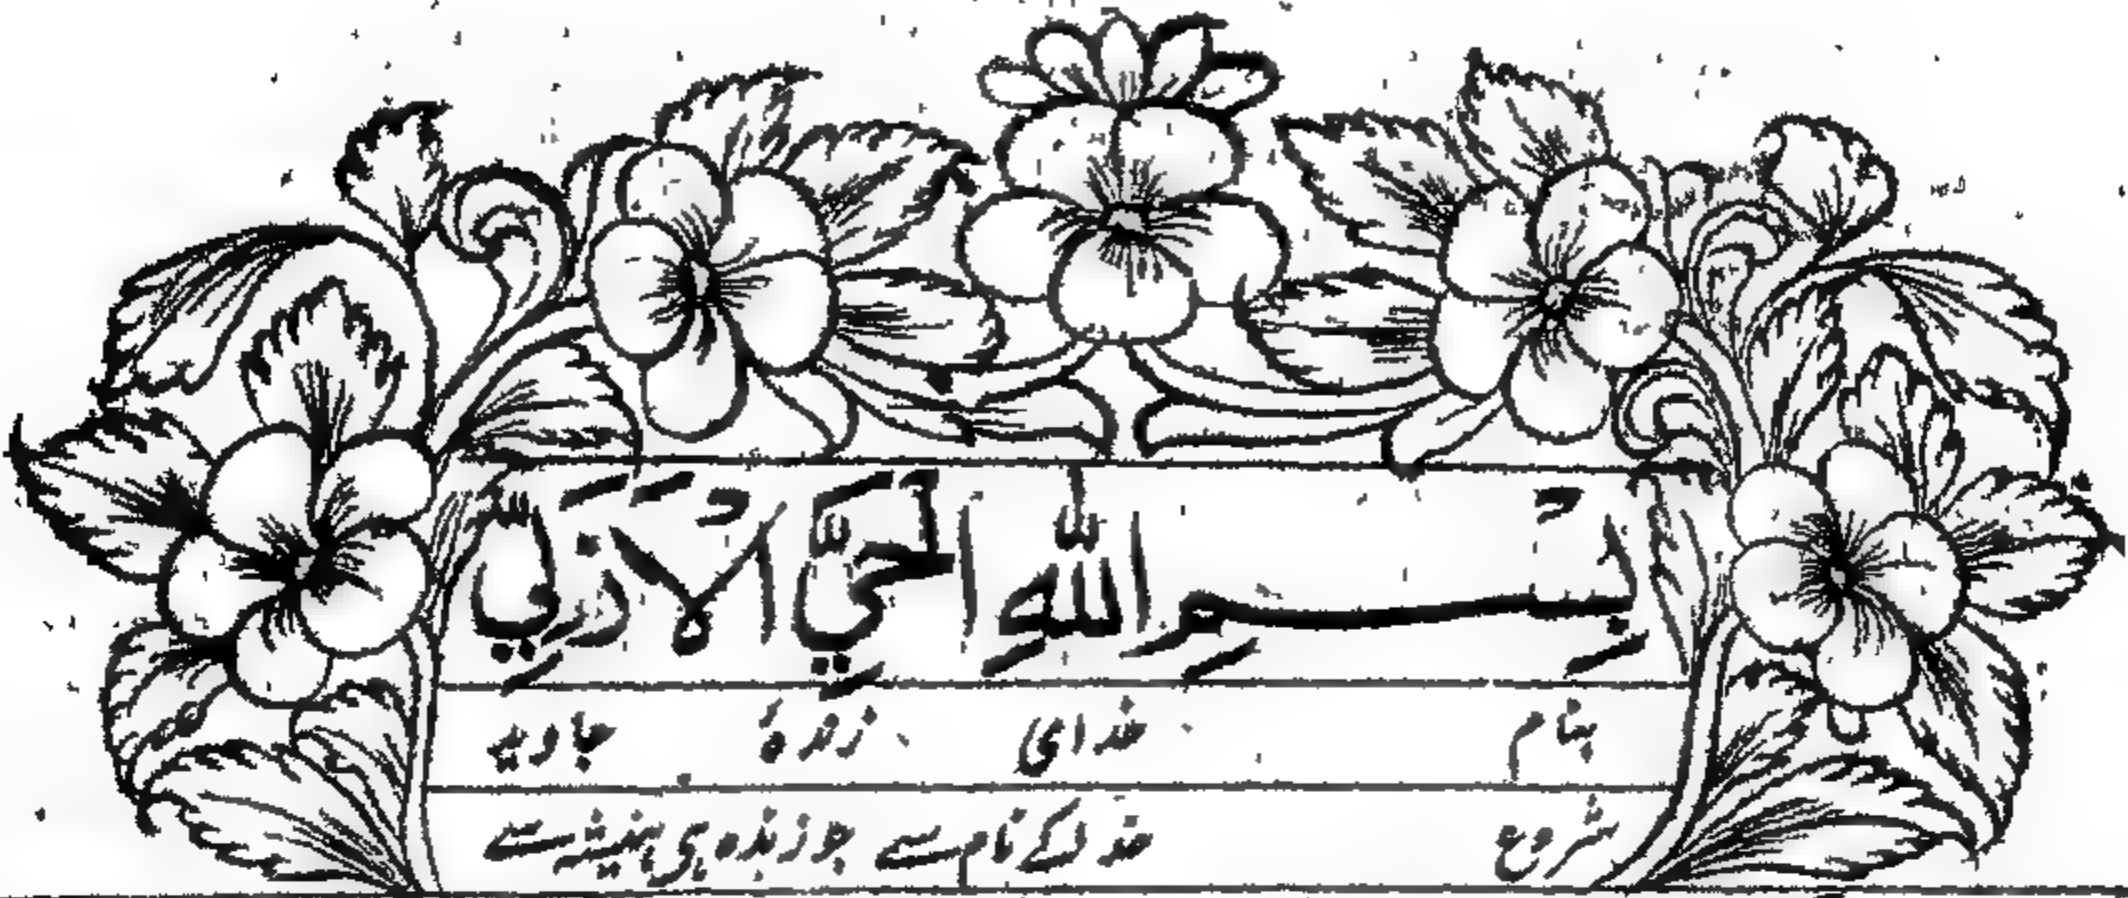 بِسْــمِ اللّٰهِ الْحَيِّ الْاَزَلِيِّ
بنام خدای زندهٔ جاوید
شروع خدا کے نام سے جو زندہ ہی ہمیشہ سے